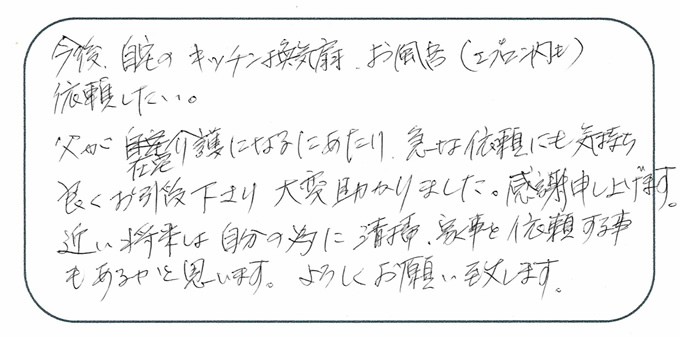 今後、自宅のキッチン換気扇、お風呂（エプロン内も）
依頼したい。
父が在宅介護になるにあたり、急な依頼にも気持ち
良くお引受下さり大変助かりました。感謝申し上げます。
近い将来は自分の為に清掃、家事を依頼する事
もあるかと思います。よろしくお願い致します。